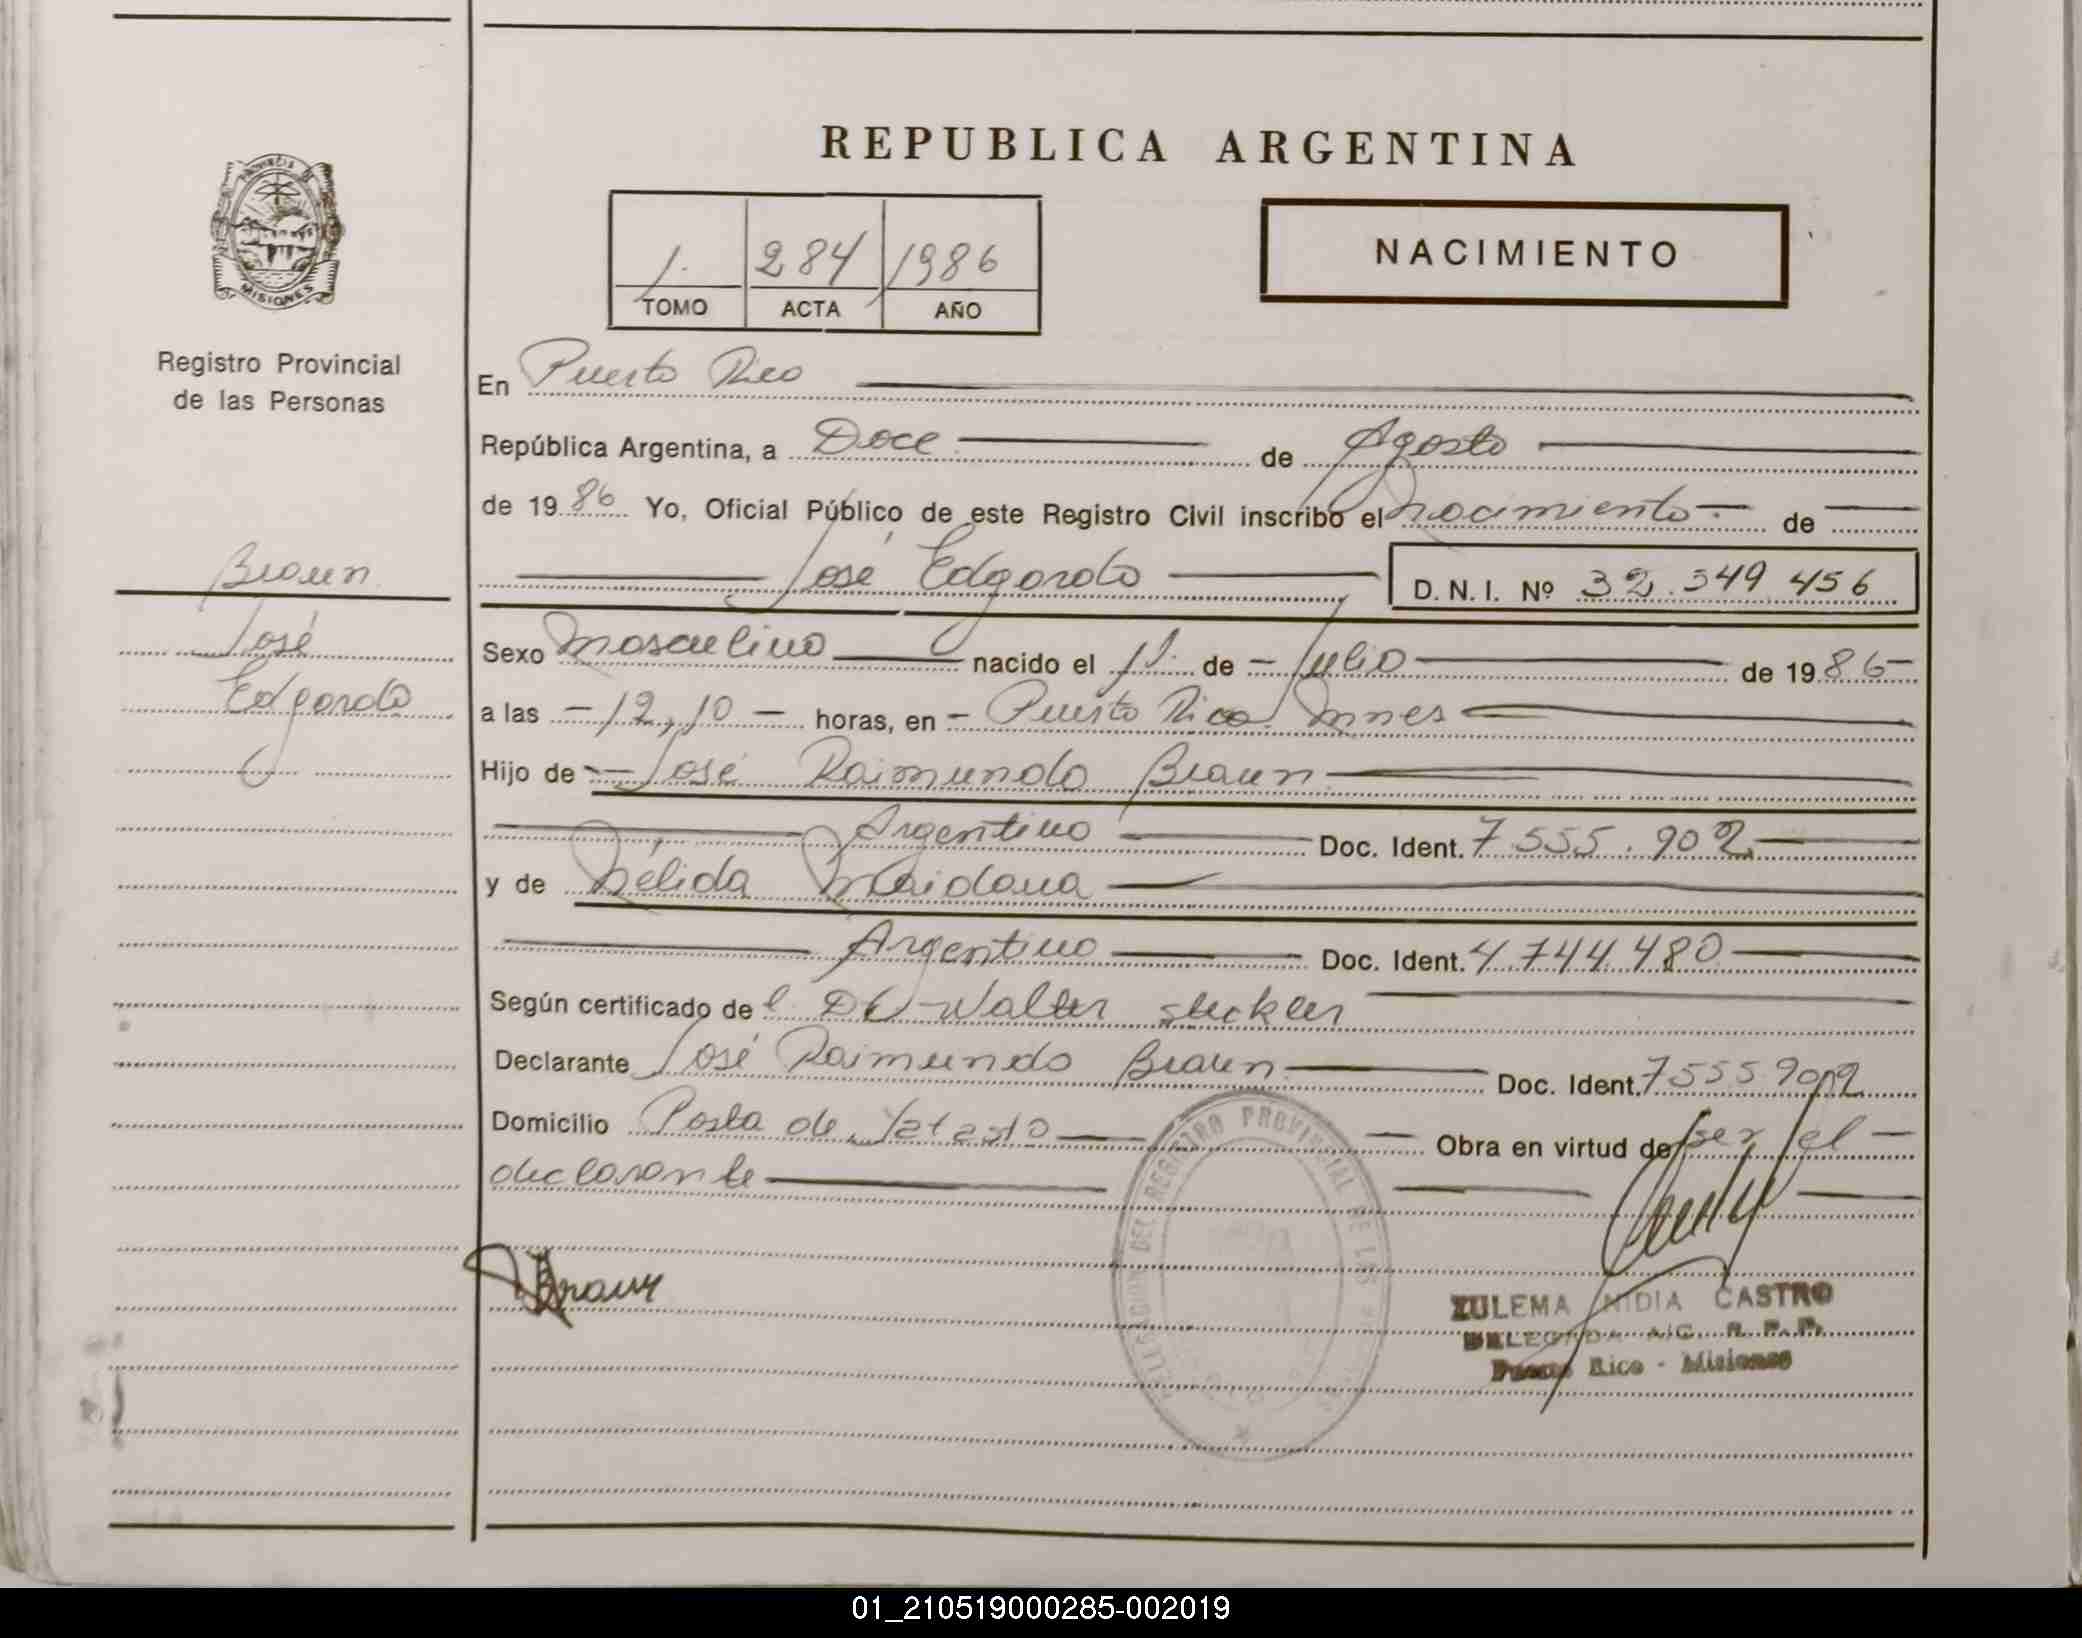 REPUBLICA ARGENTINA
PROVINCIA D
MISIONES
Registro Provincial
de las Personas
1. 284 1986
TOMO ACTA AÑO
NACIMIENTO
En Puerto Rico
República Argentina, a Doce de Agosto
de 1986 Yo, Oficial Público de este Registro Civil inscribo el Nacimiento de
José Edgardo D.N.I. Nº 32.349.456
Braun
José
Edgardo
Sexo Masculino nacido el de Julio de 1986
a las 12,10 horas, en Puerto Rico Mnes
Hijo de José Raimundo Braun
Argentino Doc. Ident. 7555.902
y de Nélida Maidana
Argentina Doc. Ident. 4.744.480
Según certificado del Dr Walter Steckler
Declarante José Raimundo Braun Doc. Ident. 7555902
Domicilio Obra en virtud de ser el
declarante
Braun
DELEGACION DEL REGISTRO PROVINCIAL DE LAS
ZULEMA NIDIA CASTRO
DELEGADA A/C. R. P. P.
Puerto Rico - Misiones
01_210519000285-002019